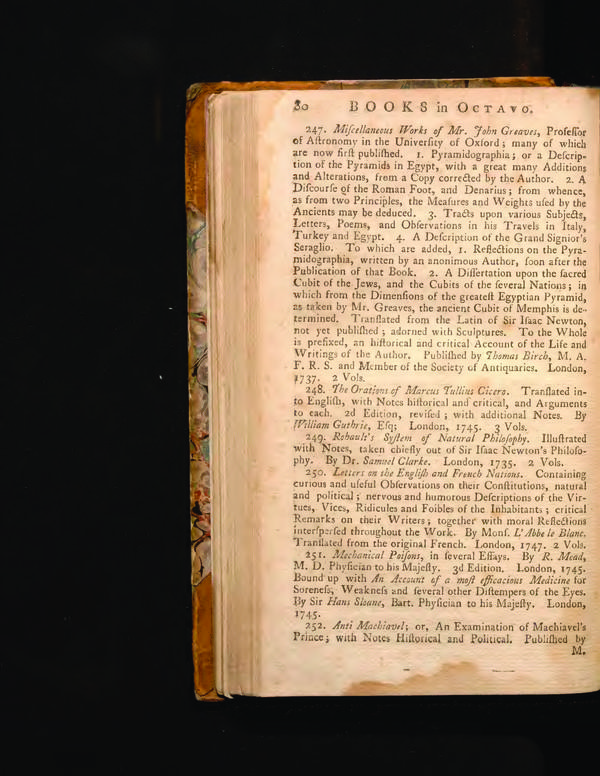 80 BOOKS in OCTAVO.
247. Miſcellaneous Works of Mr. John Greaves, Profeſſor
of Aſtronomy in the Univerſity of Oxford; many of which
are now firſt publiſhed. 1. Pyramidographia; or a Deſcrip-
tion of the Pyramids in Egypt, with a great many Additions
and Alterations, from a Copy corrected by the Author. 2. A
Diſcourſe of the Roman Foot, and Denarius; from whence,
as from two Principles, the Meaſures and Weights uſed by the
Ancients may be deduced. 3. Tracts upon various Subjects,
Letters, Poems, and Obſervations in his Travels in Italy,
Turkey and Egypt. 4. A Deſcription of the Grand Signior's
Seraglio. To which are added, 1. Reflections on the Pyra-
midographia, written by an anonimous Author, ſoon after the
Publication of that Book. 2. A Diſſertation upon the ſacred
Cubit of the Jews, and the Cubits of the ſeveral Nations; in
which from the Dimenſions of the greateſt Egyptian Pyramid,
as taken by Mr. Greaves, the ancient Cubit of Memphis is de-
termined. Tranſlated from the Latin of Sir Iſaac Newton,
not yet publiſhed; adorned with Sculptures. To the Whole
is prefixed, an hiſtorical and critical Account of the Life and
Writings of the Author. Publiſhed by Thomas Birch, M. A.
F. R. S. and Member of the Society of Antiquaries. London,
1737. 2 Vols.
248. The Orations of Marcus Tullius Cicero. Tranſlated in-
to Engliſh, with Notes hiſtorical and critical, and Arguments
to each. 2d Edition, reviſed; with additional Notes. By
William Guthrie, Eſq; London, 1745. 3 Vols.
249. Rohault's Syſtem of Natural Philoſophy. Illuſtrated
with Notes, taken chiefly out of Sir Iſaac Newton's Philoſo-
phy. By Dr. Samuel Clarke. London, 1735. 2 Vols.
250. Letters on the Engliſh and French Nations. Containing
curious and uſeful Obſervations on their Conſtitutions, natural
and political; nervous and humorous Deſcriptions of the Vir-
tues, Vices, Ridicules and Foibles of the Inhabitants; critical
Remarks on their Writers; together with moral Reflections
interſperſed throughout the Work. By Monſ. L'Abbe le Blanc.
Tranſlated from the original French. London, 1747. 2 Vols.
251. Mechanical Poiſons, in ſeveral Eſſays. By R. Mead,
M. D. Phyſician to his Majeſty. 3d Edition. London, 1745.
Bound up with An Account of a moſt efficacious Medicine for
Soreneſs, Weakneſs and ſeveral other Diſtempers of the Eyes.
By Sir Hans Sloane, Bart. Phyſician to his Majeſty. London,
1745.
252. Anti Machiavel; or, An Examination of Machiavel's
Prince; with Notes Hiſtorical and Political. Publiſhed by
M.